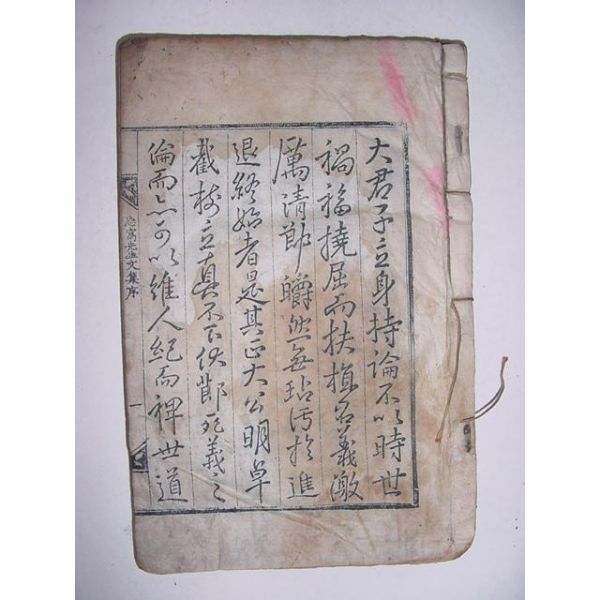 大君子立身持論不以時世
禍福撓屈而扶植名義激
厲清節皭然無玷汚於進
退終始者是其正大公明卓
截樹立真不下伏節死義之
倫而亦可以維人紀而裨世道
先生文集序
一